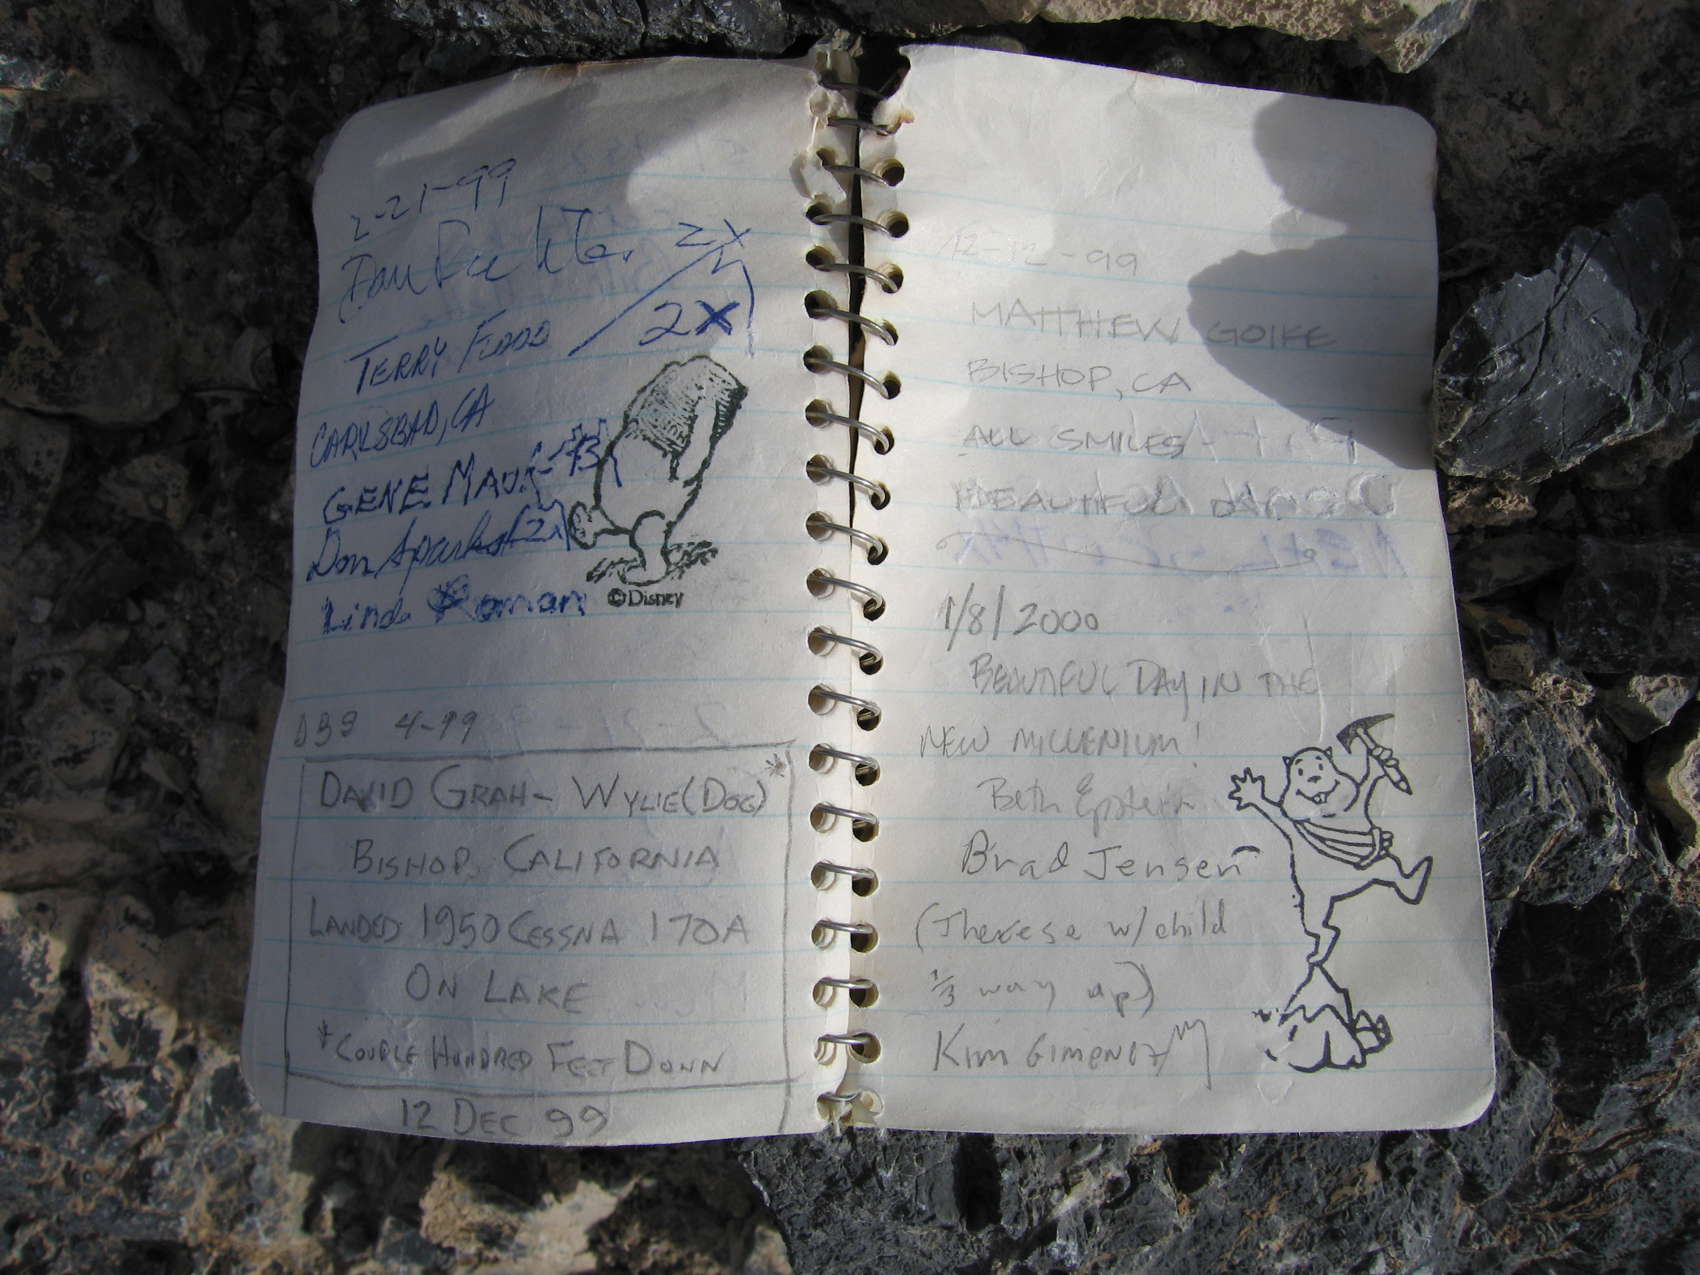 2-21-99
Dan 2X
TERRY FLOOD 2X
CARLSBAD, CA
GENE
Don Sparks 2x
Linda Roman
©Disney
DBG 4-99
DAVID GRAH - WYLIE (DOG)*
BISHOP, CALIFORNIA
LANDED 1950 CESSNA 170A
ON LAKE
*COUPLE HUNDRED FEET DOWN
12 DEC 99
12-12-99
MATTHEW GOIKE
BISHOP, CA
ALL SMILES
BEAUTIFUL DAY
1/8/2000
BEAUTIFUL DAY IN THE
NEW MILLENIUM!
Beth Epstein
Brad Jensen
(Therese w/ child
1/3 way up)
Kim